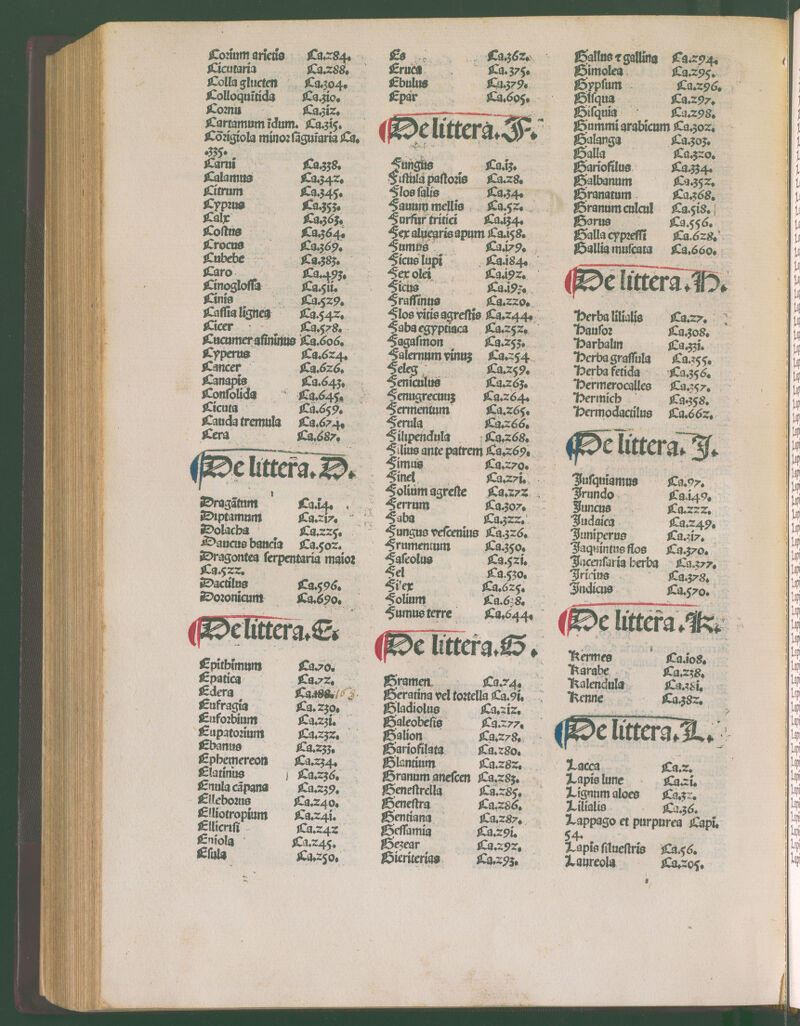 Corium arietis Ca.284.
Cicutaria Ca.288.
Colla glucten Ca.304.
Colloquītida Ca.310.
Cornu Ca.312.
Cartamum īdum. Ca.315.
Cōrigiola minor sāguīaria Ca.
.335.
Carui Ca.338.
Calamus Ca.342.
Citrum Ca.345.
Cyprus Ca.353.
Calx Ca.363.
Costus Ca.364.
Crocus Ca.369.
Cubebe Ca.383.
Caro Ca.493.
Cinoglossa Ca.511.
Cinis Ca.529.
Cassia lignea Ca.542.
Cicer Ca.578.
Cucumer asininus Ca.606.
Cyperus Ca.624.
Cancer Ca.626.
Canapis Ca.643.
Consolida Ca.645.
Cicuta Ca.659.
Cauda tremula Ca.674.
Cera Ca.687.
De littera.D.
Dragātum Ca.14.
Diptamum Ca.217.
Dolacha Ca.225.
Daucus baucia Ca.502.
Dragontea serpentaria maior
Ca.522.
Dactilus Ca.596.
Doronicum Ca.690.
De littera.E.
Epithimum Ca.70.
Epatica Ca.72.
Edera Ca.188. 163.
Eufragia Ca.230.
Euforbium Ca.231.
Eupatorium Ca.232.
Ebanus Ca.233.
Ephemereon Ca.234.
Elatinus Ca.236.
Enula cāpana Ca.239.
Elleborus Ca.240.
Elliotropium Ca.241.
Ellicrisi Ca.242
Eniola Ca.245.
Esula Ca.250.
Es Ca.362.
Eruca Ca.375.
Ebulus Ca.379.
Epar Ca.605.
De littera.F.
Fungus Ca.13.
Fistula pastoris Ca.28.
Flos salis Ca.34.
Fauum mellis Ca.52.
Furfur tritici Ca.134.
Fex aluearis apum Ca.158.
Fumus Ca.179.
Ficus lupi Ca.184.
Fex olei Ca.192.
Ficus
Fraxinus Ca.220.
Flos vitis agrestis Ca.244.
Faba egyptiaca Ca.252.
Fagasmon Ca.253.
Falernum vinuꝫ Ca.254
Feleg Ca.259.
Feniculus Ca.263.
Fenugrecuꝫ Ca.264.
Fermentum Ca.265.
Ferula Ca.266.
Filipendula Ca.268.
Filius ante patrem Ca.269.
Fimus Ca.270.
Finel Ca.271.
Folium agreste Ca.272
Ferrum Ca.307.
Faba Ca.322.
Fungus vescenius Ca.326.
Frumentum Ca.350.
Faseolus Ca.521.
Fel Ca.530.
Silex Ca.625.
Folium
Fumus terre Ca.644.
De littera.G.
Gramen Ca.24.
Geratina vel tortella Ca.91.
Gladiolus Ca.212.
Galeobesis Ca.277.
Galion Ca.278.
Gariofilata Ca.280.
Glantium Ca.282.
Granum anescen Ca.283.
Genestrella Ca.285.
Genestra Ca.286.
Gentiana Ca.287.
Gessamia Ca.291.
Gezear Ca.292.
Gieriterias Ca.293.
Gallus ⁊ gallina Ca.294.
Gimolea Ca.295.
Gypsum Ca.296.
Glisqua Ca.297.
Gisquia Ca.298.
Gummi arabicum Ca.302.
Galanga Ca.303.
Galla Ca.320.
Gariofilus Ca.334.
Galbanum Ca.352.
Granatum Ca.368.
Granum culcul Ca.518.
Gorus Ca.556.
Galla cypressi Ca.628.
Gallia muscata Ca.660.
De littera.H.
Herba lilialis Ca.27.
Hausor Ca.308.
Harbalin Ca.331.
Herba grassula Ca.355.
Herba fetida Ca.356.
Hermerocalles Ca.357.
Hermich Ca.358.
Hermodactilus Ca.662.
De littera.J.
Jusquiamus Ca.97.
Jrundo Ca.149.
Juncus Ca.222.
Judaica Ca.249.
Juniperus Ca.317.
Jaquintus flos Ca.370.
Jncensaria herba Ca.377.
Jricius Ca.378.
Jndicus Ca.570.
De littera.K.
Kermes Ca.108.
Karabe Ca.238.
Kalendula Ca.381.
Kenne Ca.382.
De littera.L.
Lacca Ca.2.
Lapis lune Ca.21.
Lignum aloes Ca.32.
Lilialis Ca.36.
Lappago et purpurea Capi.
54.
Lapis siluestris Ca.56.
Laureola Ca.205.